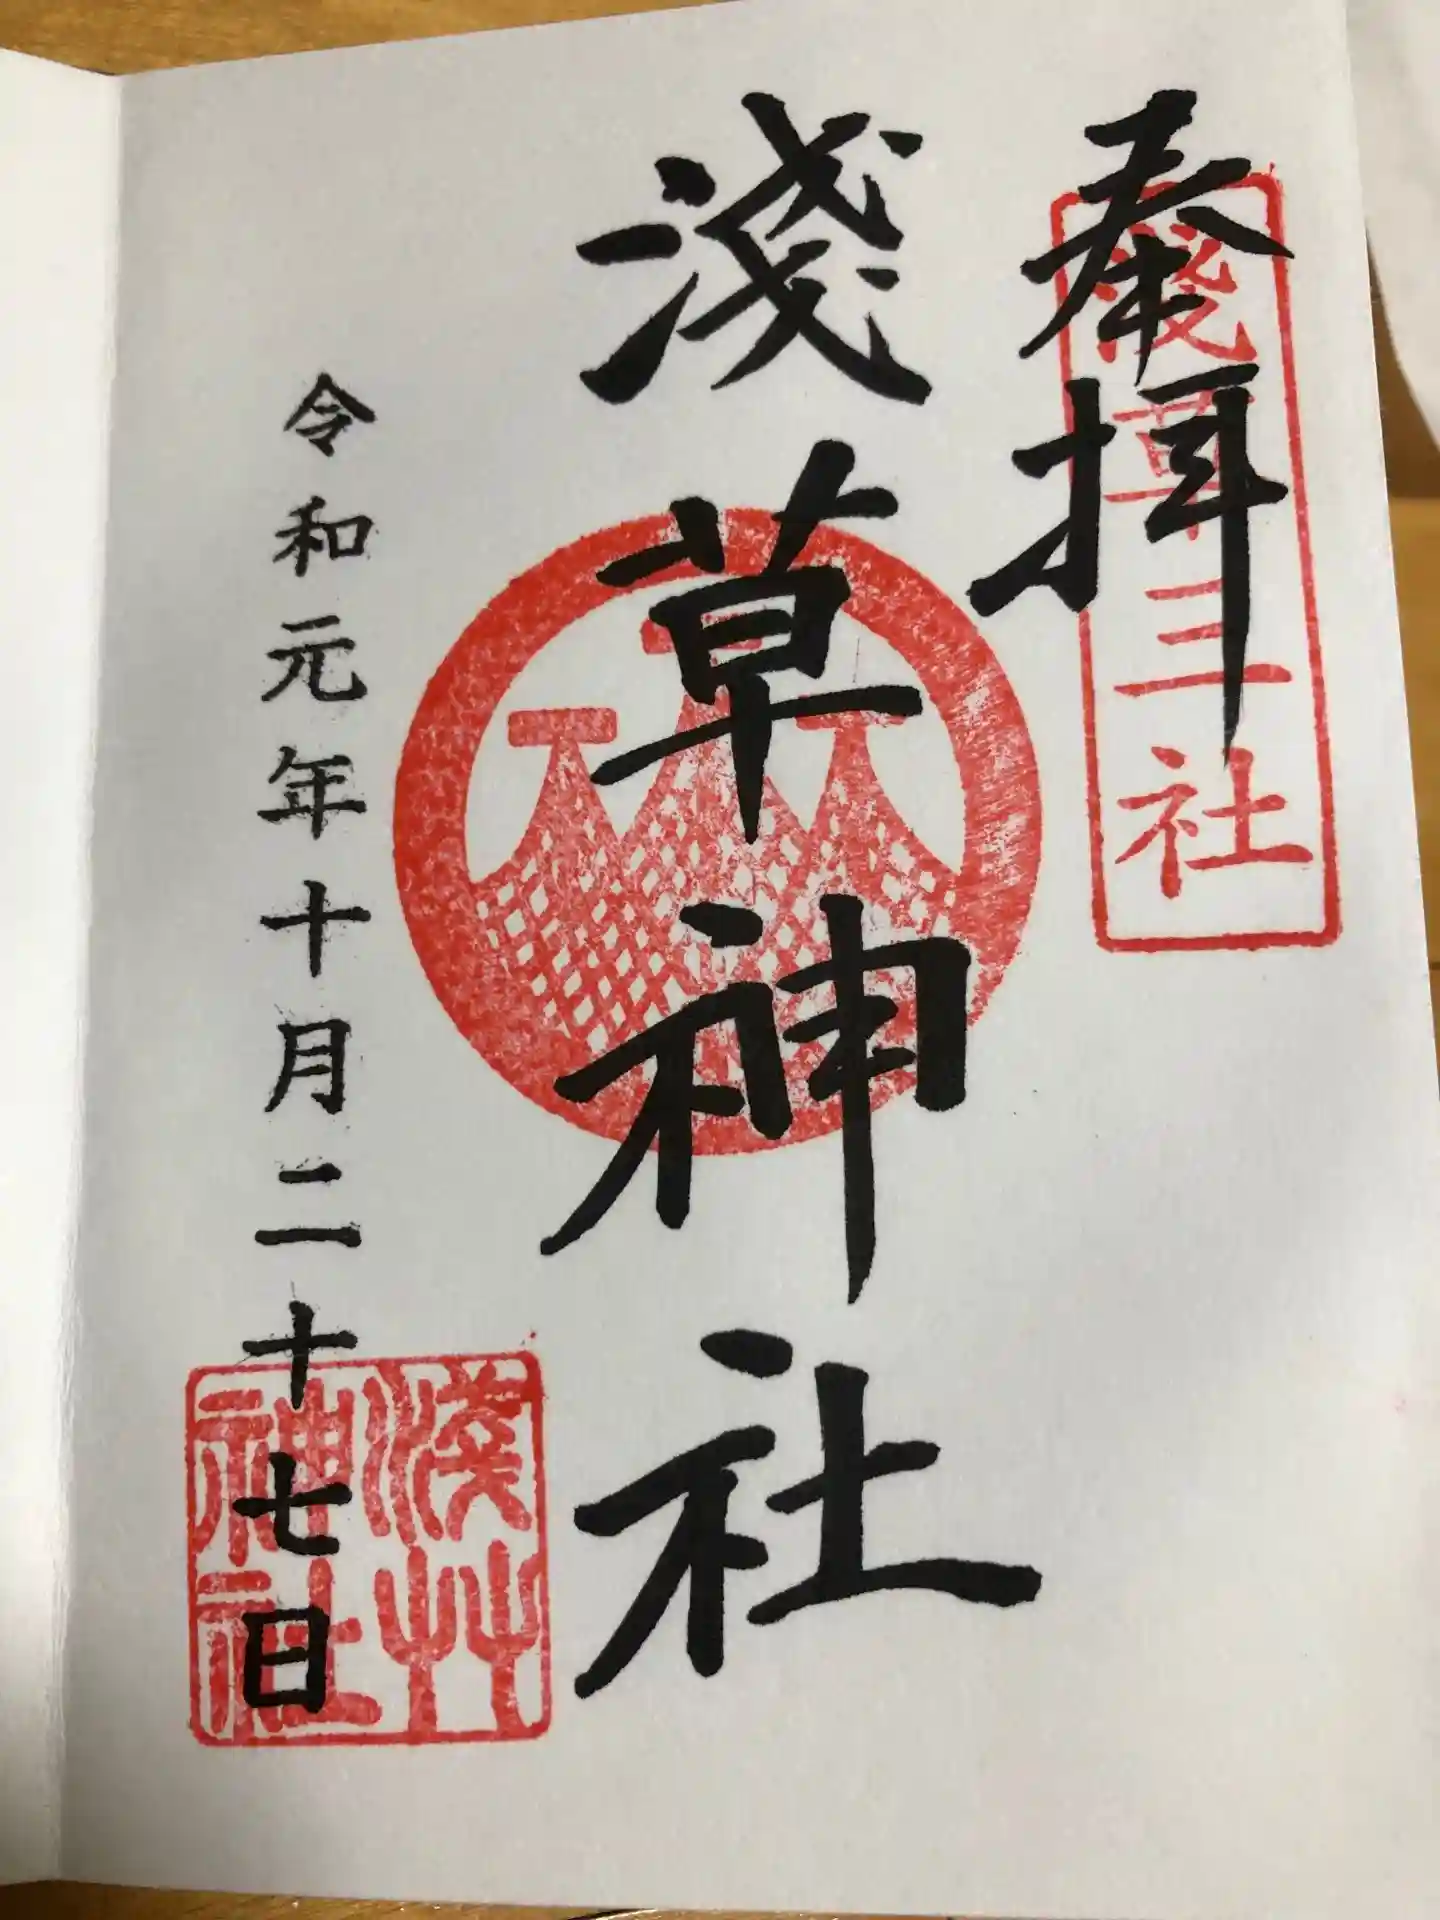 奉拝
淺草三社
淺草神社
令和元年十月二十七日
淺草
神社